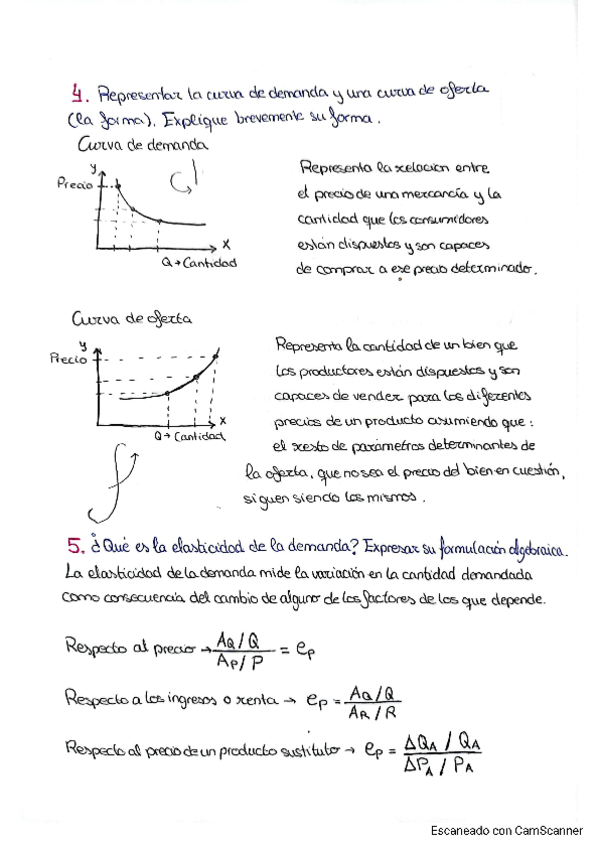 4. Representar la curva de demanda y una curva de oferta
(la forma). Explique brevemente su forma.
Curva de demanda
y
Precio
x
Q → Cantidad
Representa la relación entre
el precio de una mercancía y la
cantidad que los consumidores
están dispuestos y son capaces
de comprar a ese precio determinado.
Curva de oferta
y
Precio
x
Q → Cantidad
Representa la cantidad de un bien que
los productores están dispuestos y son
capaces de vender para los diferentes
precios de un producto asumiendo que:
el resto de parámetros determinantes de
la oferta, que no sea el precio del bien en cuestión,
siguen siendo los mismos.
5. ¿Qué es la elasticidad de la demanda? Expresar su formulación algebraica.
La elasticidad de la demanda mide la variación en la cantidad demandada
como consecuencia del cambio de alguno de los factores de los que depende.
Respecto al precio → AQ/Q / AP/P = ep
Respecto a los ingresos o renta → ep = AQ/Q / AR/R
Respecto al precio de un producto sustituto → ep = ΔQA / QA / ΔPA / PA
Escaneado con CamScanner